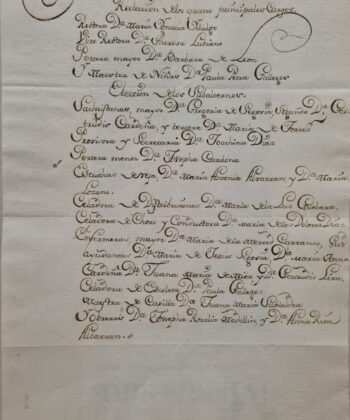 Reeleccion de los quatro principales Cargos
Rectora Dª Maria Ignacia Hidalgo
Vice Rectora Dª Theresa Lubiano
Portera mayor Dª Barbara de Leon
Y Maestra de Niñas Dª Paula Perez Gallegos
Eleccion de los Subalternos
Sachristanas, mayor Dª Gregoria de Segovia, Segunda Dª
trudis Cardeña, y tercera Dª Maria de Torres
Provisora y Secretaria Dª Joachina Diaz
Portera menor Dª Josepha Cardona
Escuchas de reja, Dª Maria Antonia Alvarran, y Dª Maria
Lozano
Celadora de Distribuciones Dª Maria de la Luz
Celadora de Choro y Conductora Dª Maria de los Dolores Diaz
Enfermeras, mayor Dª Maria de la Merced Carranco, sus
ayudantas Dª Maria de Jesus Segovia, Dª Maria Anna
Cardeña, Dª Juana Maria de Mier, y Dª Gertrudis Luna
Celadora de Escalera Dª Paula Gallegos
Maestra de Capilla Dª Juana Maria
Y Obreras Dª Josepha Rosalia Medellin, y Dª Anna Rita
Albarran.